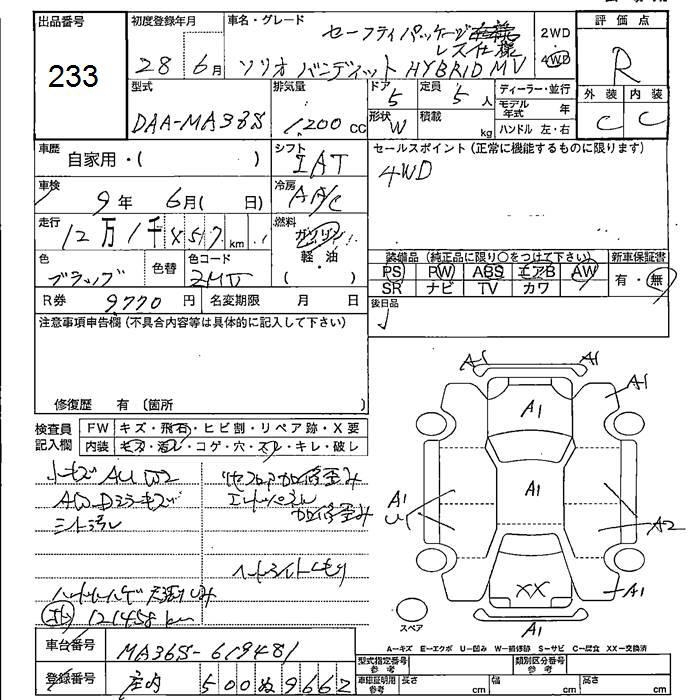 出品番号
233
初度登録年月
28年 6月
車名・グレード
セーフティパッケージ
レス仕様
ソリオ バンディット HYBRID MV
2WD
4WD
評価点
R
外装 内装
C C
型式
DAA-MA36S
排気量
1,200 cc
ドア 5
形状 W
定員 5人
積載 kg
ディーラー・並行
モデル年式 年
ハンドル 左・右
車歴
自家用・( )
シフト
IAT
セールスポイント(正常に機能するものに限ります)
4WD
車検
9年 6月( 日)
冷房
AAC
走行
12万1千457km
燃料
ガソリン
軽・油
( )
色
ブラック
色替
色コード
ZMV
装備品(純正品に限り○をつけて下さい)
PS PW ABS エアB AW
SR ナビ TV カワ
新車保証書
有・無
R券 9770円
名変期限 月 日
後日品
注意事項申告欄(不具合内容等は具体的に記入して下さい)
修復歴 有(箇所 )
検査員
記入欄
FW キズ・飛石・ヒビ割・リペア跡・X要
内装 キズ・汚レ・コゲ・穴・スレ・キレ・破レ
小キズ AU W2
AW Dミラーキズ
シート汚レ
リヤフロア加修歪み
エンドパネル
加修歪み
ヘッドライトくもり
121458km
A1 A1
A1
A1
A1
A1
U1
A2
XX
A1
A1
スペア
A-キズ E-エクボ U-凹み W-補修跡 S-サビ C-腐食 XX-交換済
車台番号
MA36S-619481
型式指定番号
参考
類別区分番号
参考
登録番号
庄内 500 ぬ 9662
車庫証明用
参考
長さ cm
幅 cm
高さ cm